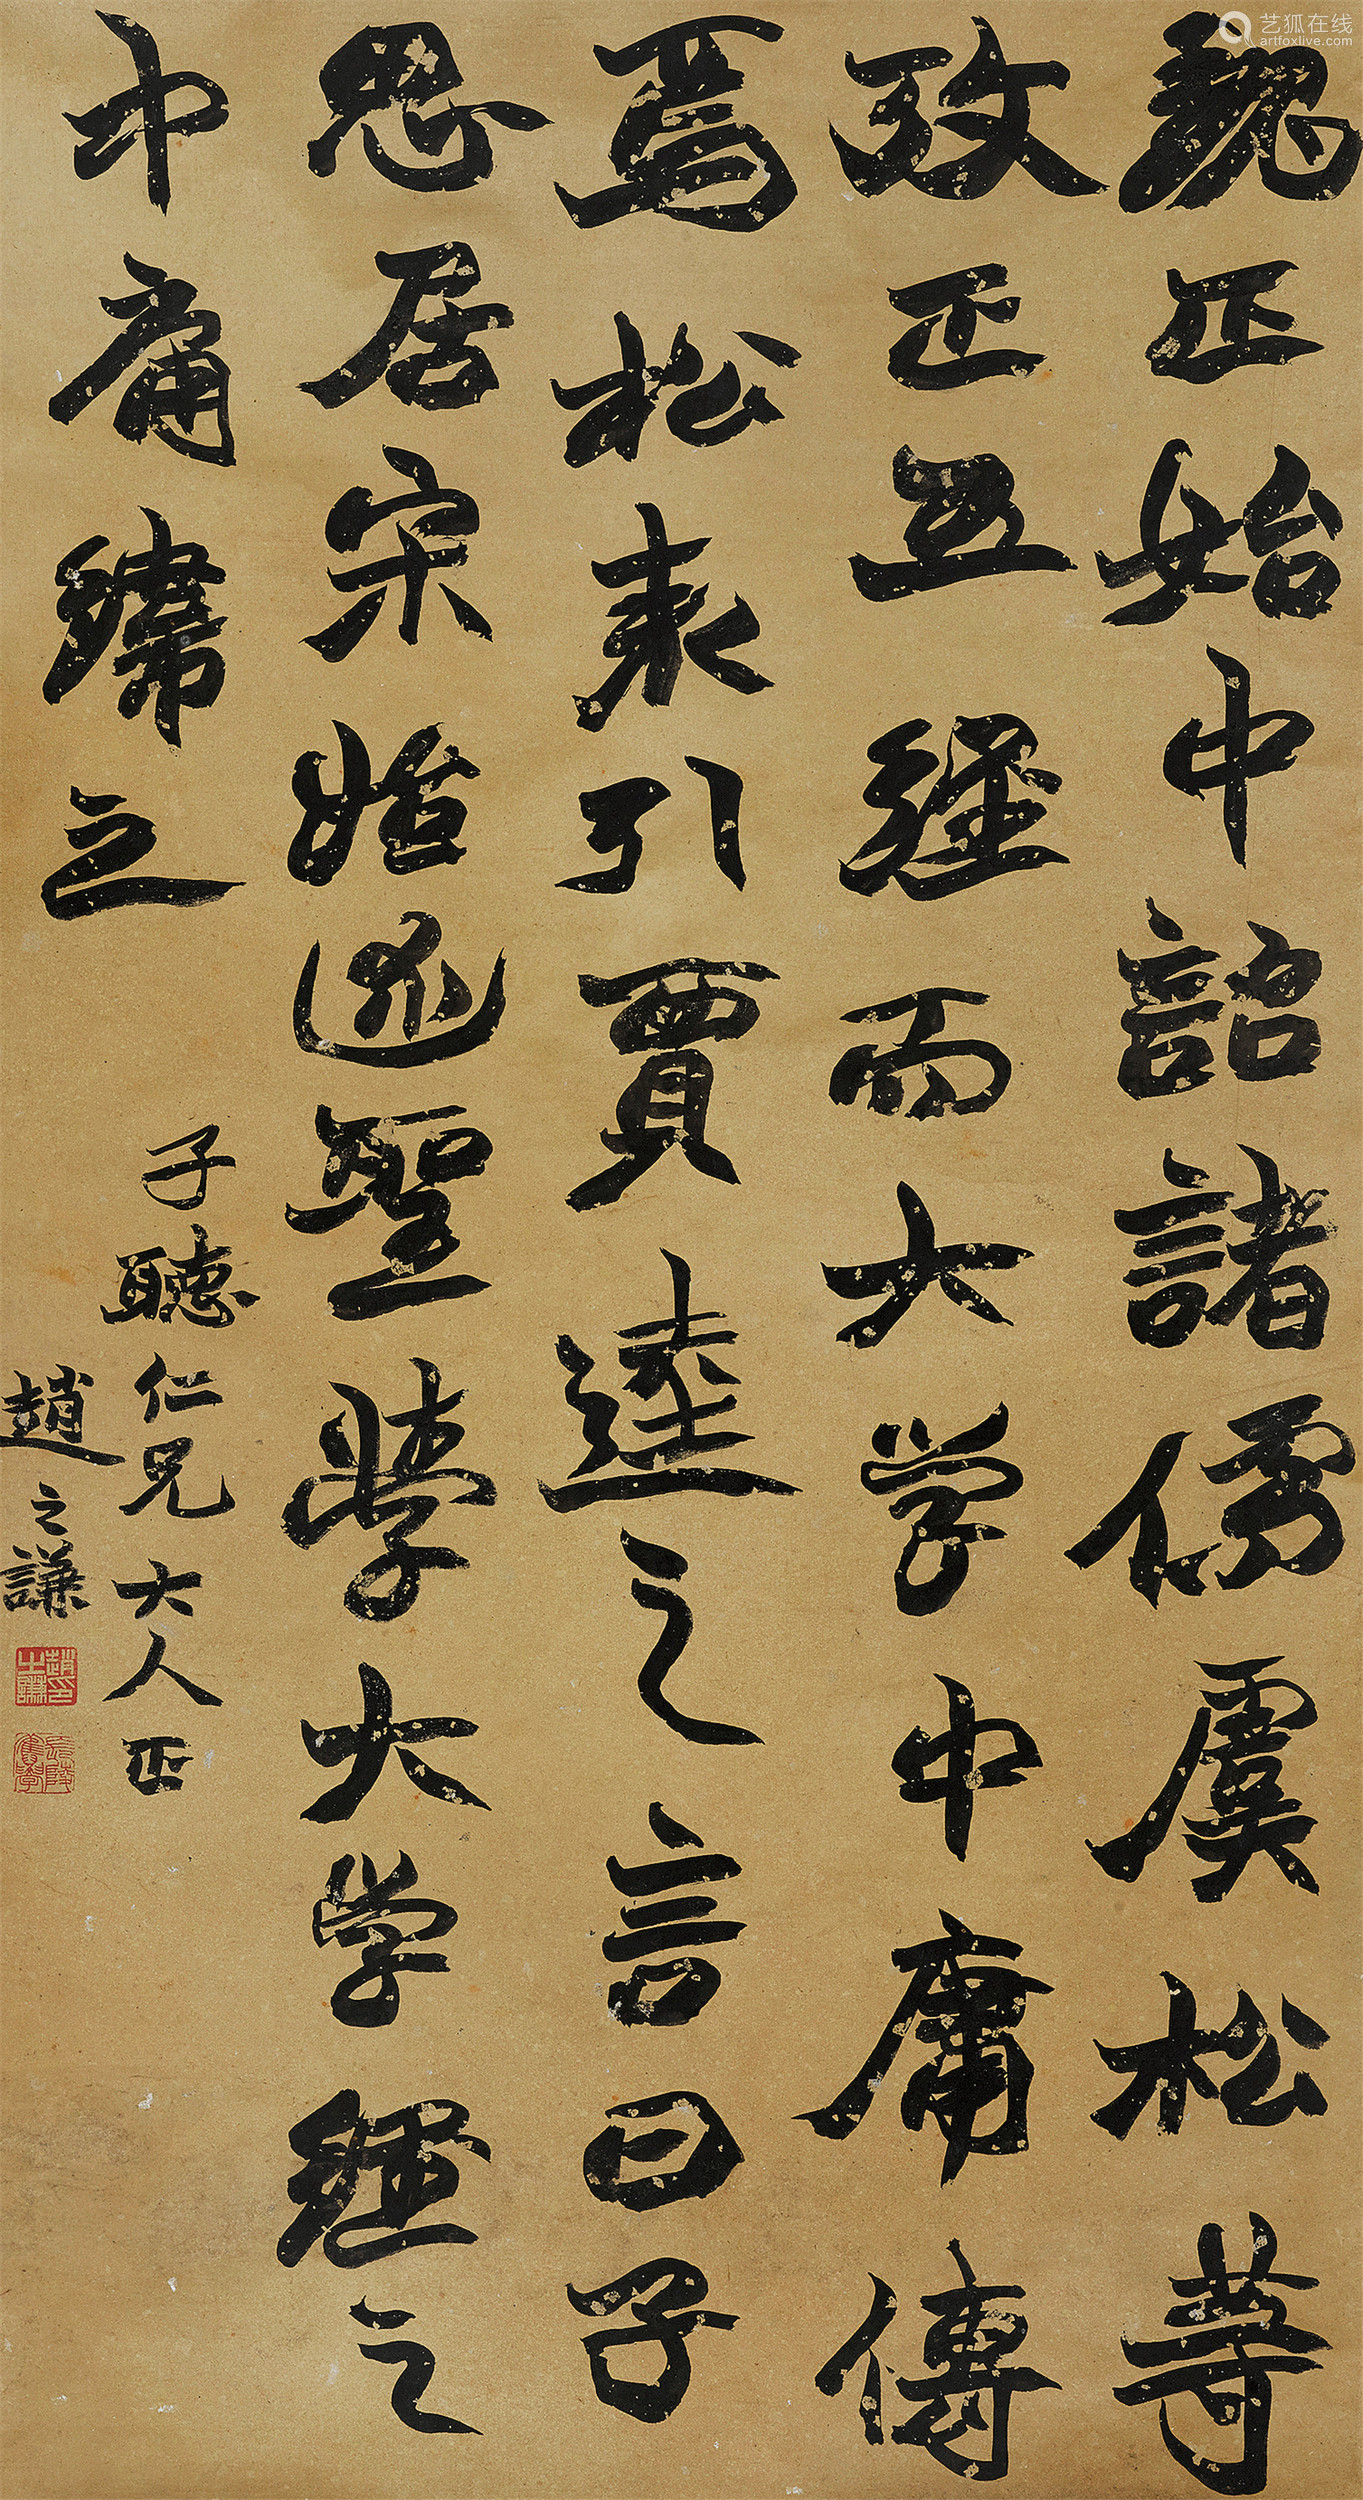 魏正始中詔諸儒虞松等
攷正五經而大学中庸傳
焉松表引賈逵之言曰子
思居宋始述聖學大学經之
中庸緯之
子聽仁兄大人正
趙之謙
趙之謙印
艺狐在线
artfoxlive.com